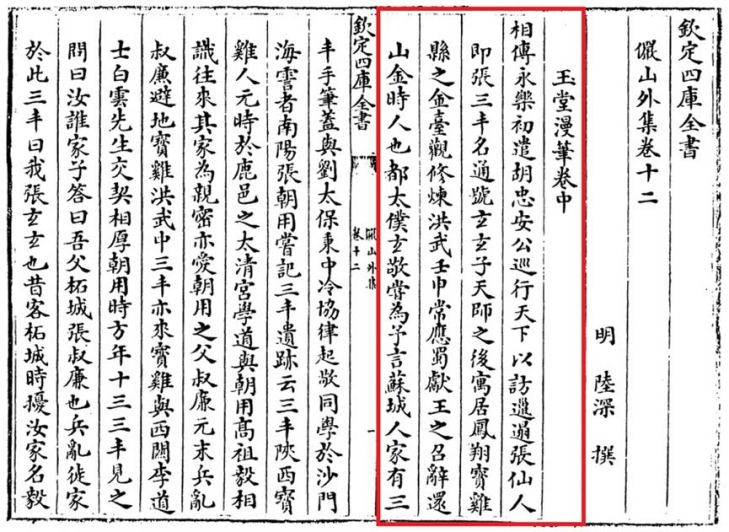 欽定四庫全書
儼山外集卷十二
明 陸深 撰
玉堂漫筆卷中
相傳永樂初遣胡忠安公巡行天下以訪邋遢張仙人
即張三丰名通號玄玄子天師之後寓居鳳翔寶雞
縣之金臺觀修煉洪武壬申常應蜀獻王之召辭還
山金時人也都太僕玄敬嘗為予言蘇城人家有三
欽定四庫全書
儼山外集
卷十二
一
丰手筆蓋與劉太保秉中冷協律起敬同學於沙門
海雲者南陽張朝用嘗記三丰遺跡云三丰陜西寶
雞人元時於鹿邑之太清宮學道與朝用高祖毅相
識往來其家為親密亦愛朝用之父叔廉元末兵亂
叔廉避地寶雞洪武中三丰亦來寶雞與西關李道
士白雲先生交契相厚朝用時方年十三三丰見之
問曰汝誰家子答曰吾父柘城張叔廉也兵亂徙家
於此三丰曰我張玄玄也昔客柘城時擾汝家名毅